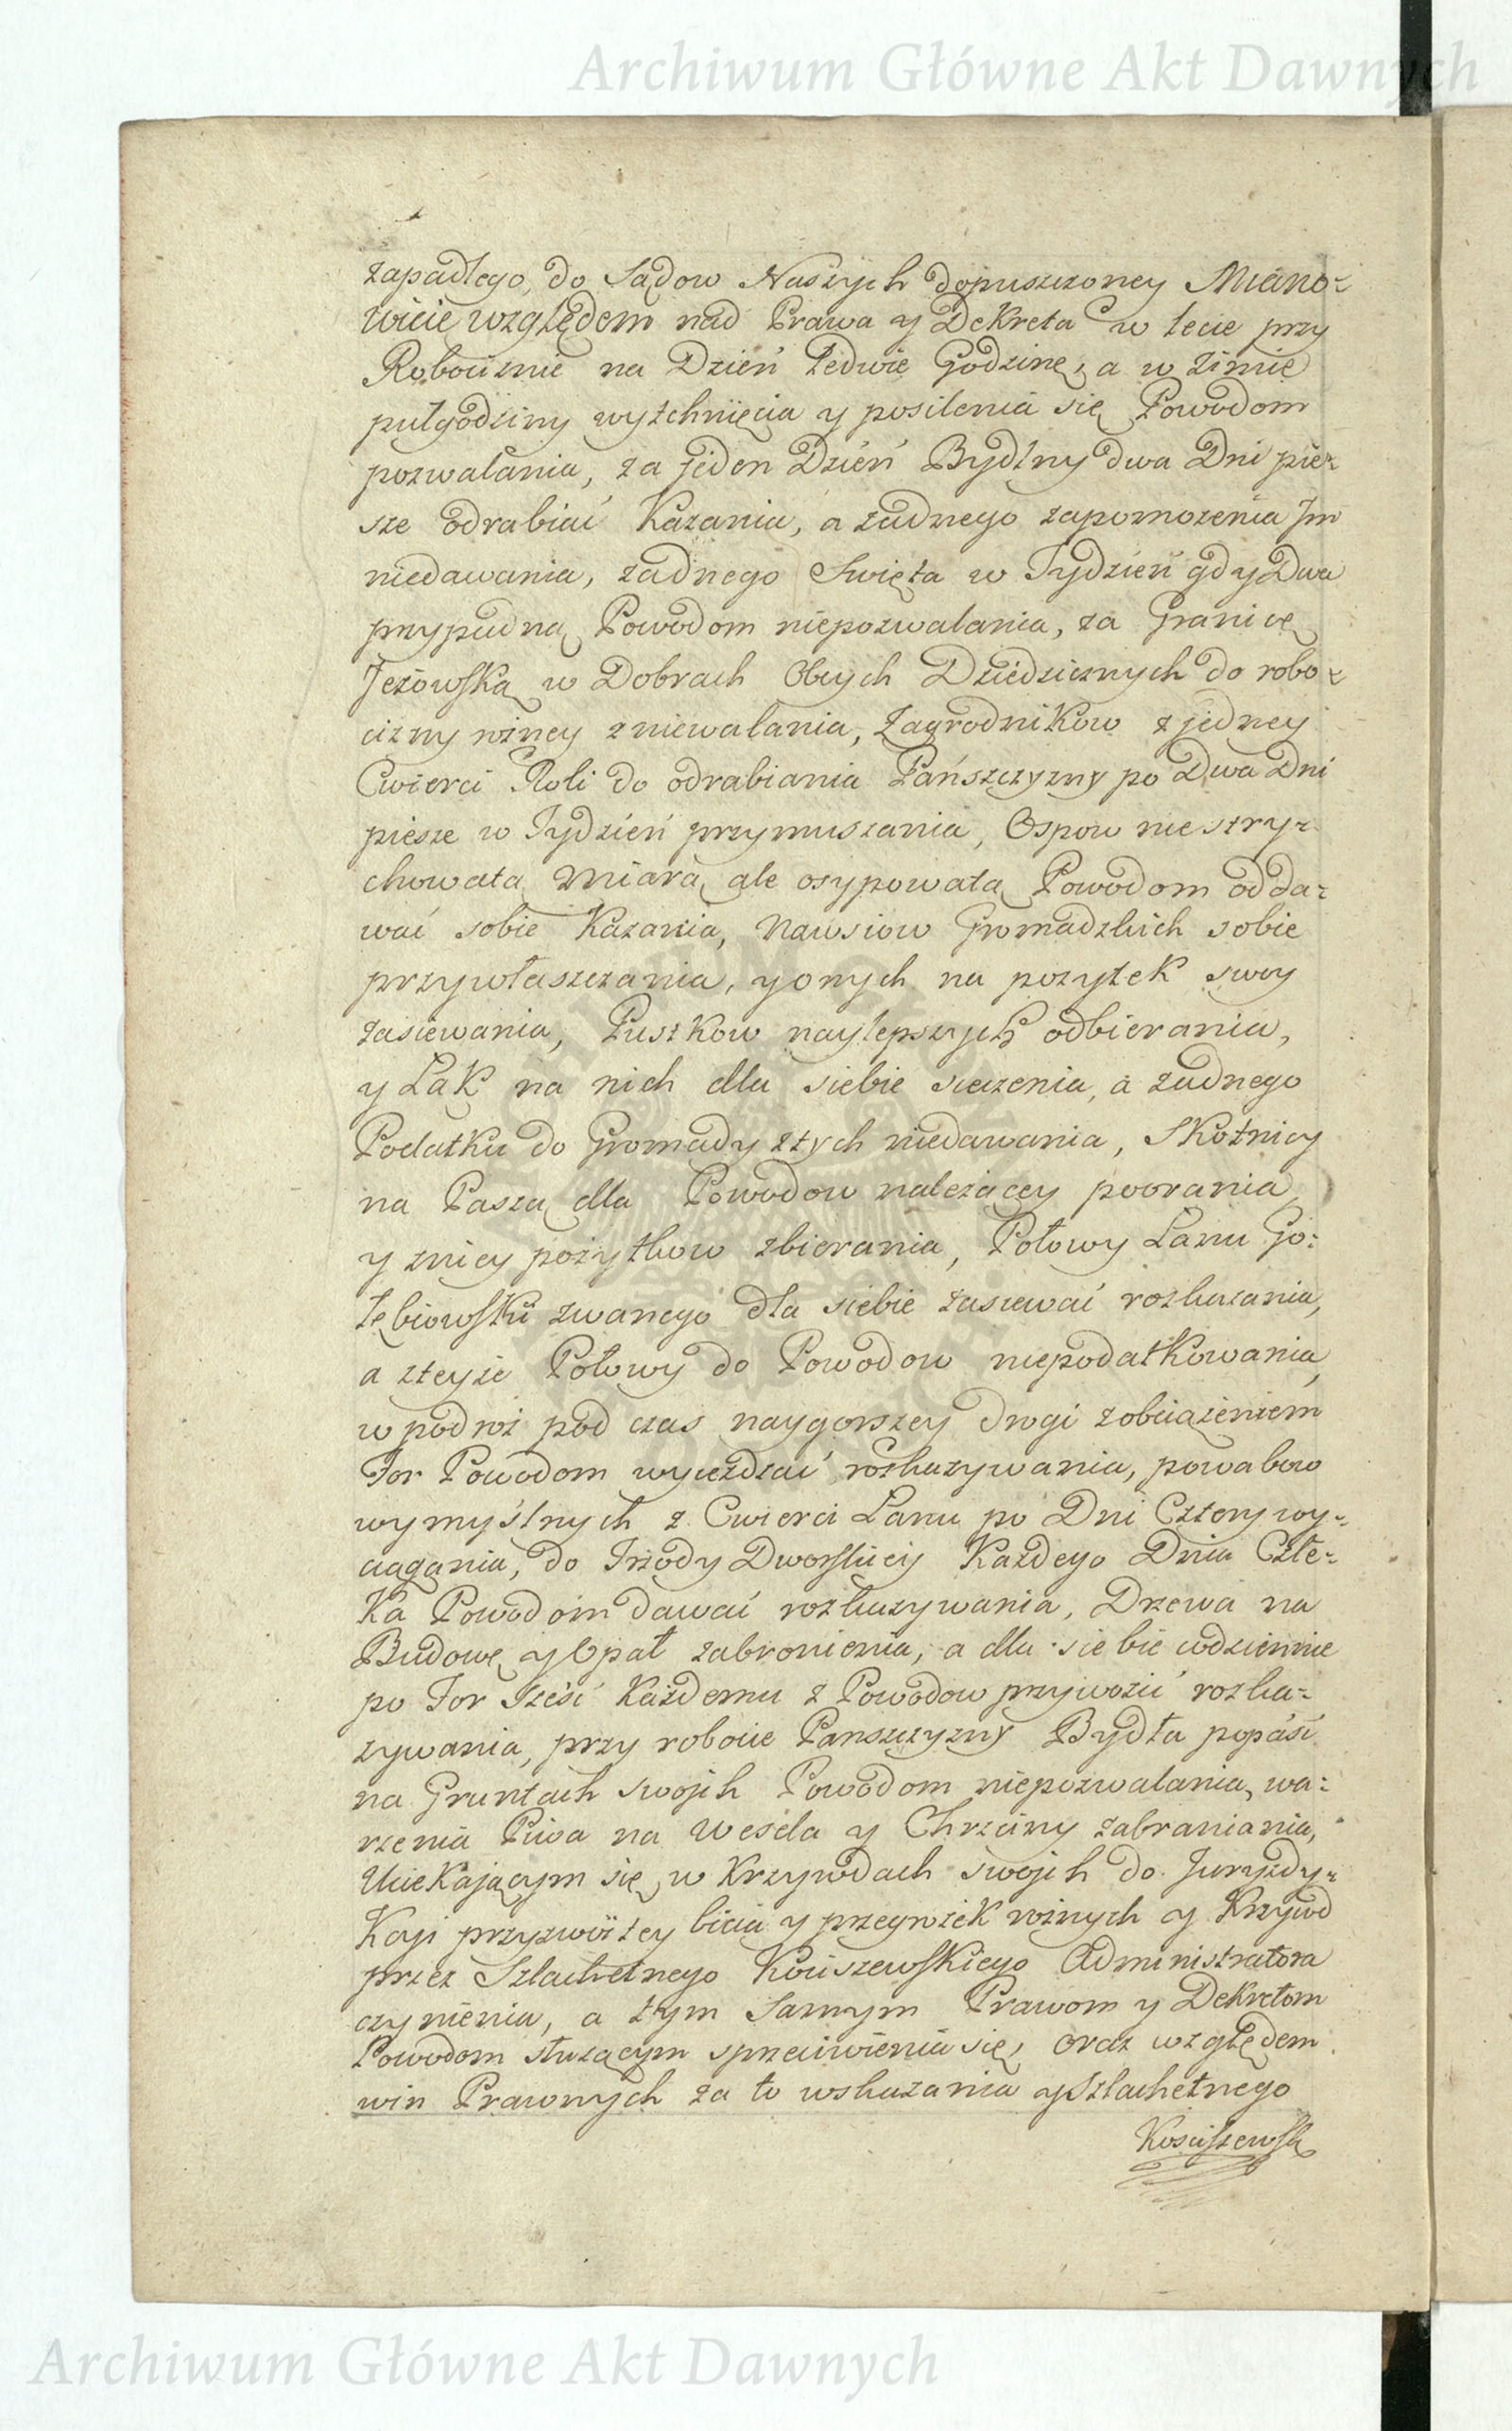 Archiwum Główne Akt Dawnych
zapadłego, do Sądow Naszych dopuszczoney Miano-
wicie względem nad Prawa y Dekreta w lecie przy
Robociznie na Dzień ledwie Godzinę, a w zimie
pułgodziny wytchnięcia y posilenia się Powodom
pozwalania, za jeden Dzień Bydlny dwa Dni pie-
sze odrabiać Kazania, a żadnego zapomożenia Jm
niedawania, żadnego Swięta w Tydzień gdy Dwa
przypadną Powodom niepozwalania, za Granicę
Jeżowską w Dobrach Obcych Dziedzicznych do robo-
cizny rożney zniewalania, Zagrodnikow z jedney
Cwierci Roli do odrabiania Pańszczyzny po Dwa Dni
piesze w Tydzień przymuszania, Ospow nie stry-
chowatą Miarą ale osypowatą Powodom odda-
wać sobie Kazania, Nawsiow Gromadzkich sobie
przywłaszczania, y onych na pozytek swoy
zasiewania, Pustkow naylepszych odbierania,
y Łąk na nich dla siebie sieczenia, a żadnego
Podatku do Gromady z tych niedawania, Skotnicy
na Paszą dla Powodow należącey poorania
y zniey pożytkow zbierania, Połowy Łanu Go-
łębiowski zwanego dla siebie zasiewać rozkazania,
a zteyże Połowy do Powodow niepodatkowania,
w podroż pod czas naygorszey drogi zobciążeniem
For Powodom wyjeżdzać rozkazywania, powabow
wymyślnych z Cwierci Łanu po Dni Cztery wy-
ciągania, do Trzody Dworskiey Każdego Dnia Człe-
ka Powodom dawać rozkazywania, Drzewa na
Budowę y Opał zabronienia, a dla siebie codziennie
po For Sześć Każdemu z Powodow przywozić rozka-
zywania, przy robocie Panszczyzny Bydła popaść
na Gruntach swojch Powodom niepozwalania, wa-
rzenia Piwa na Wesela y Chrzciny zabraniania,
Uciekającym się w Krzywdach swojch do Juryzdy-
Kcyi przyzwoitey bicia y przegrożek rożnych y Krzywd
przez Szlachetnego Kociszewskiego Administratora
czynienia, a tym samym Prawom y Dekretom
Powodom służącym sprzeciwienia się, oraz względem
win Prawnych za to wskazania y Szlachetnego
Kosciszewsk
Archiwum Główne Akt Dawnych